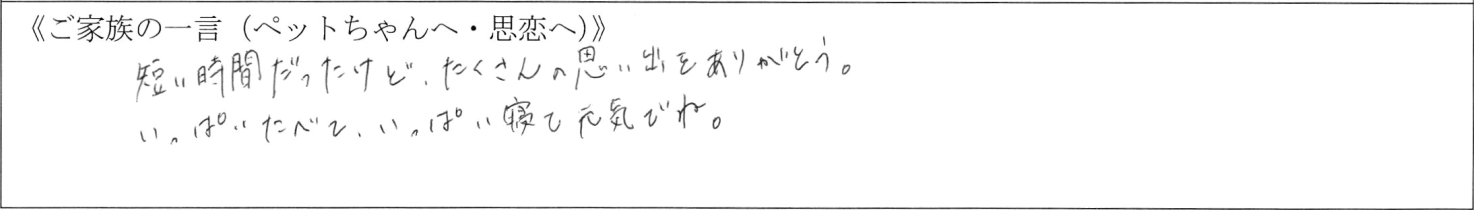 《ご家族の一言（ペットちゃんへ・思恋へ）》
短い時間だったけど、たくさんの思い出をありがとう。
いっぱいたべて、いっぱい寝て元気でね。